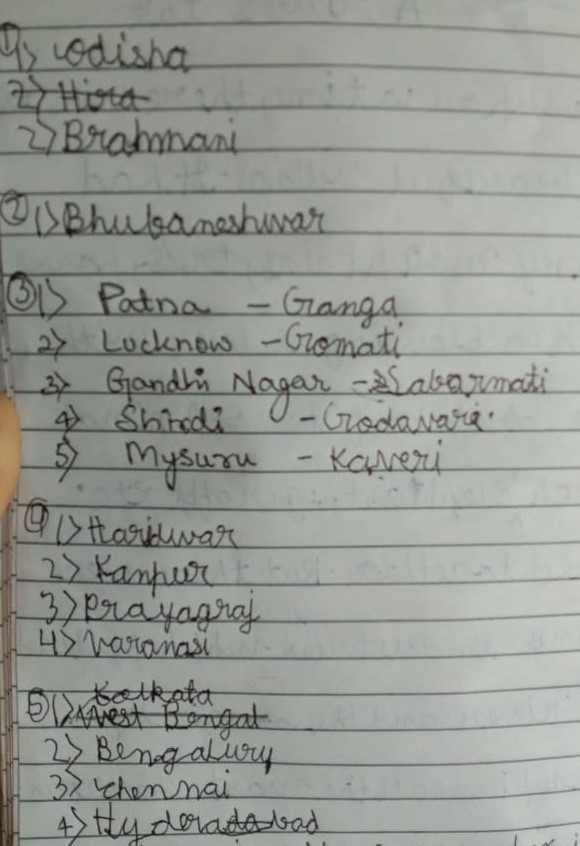 1) Odisha
2) Hira
2) Brahmani
② 1) Bhubaneshwar
③ 1) Patna - Ganga
2) Lucknow - Gomati
3) Gandhi Nagar - Sabarmati
4) Shirdi - Godavari.
5) Mysuru - Kaveri
④ 1) Haridwar
2) Kanpur
3) Prayagraj
4) Varanasi
Kolkata
⑤ 1) West Bengal
2) Bengaluru
3) Chennai
4) Hyderadabad